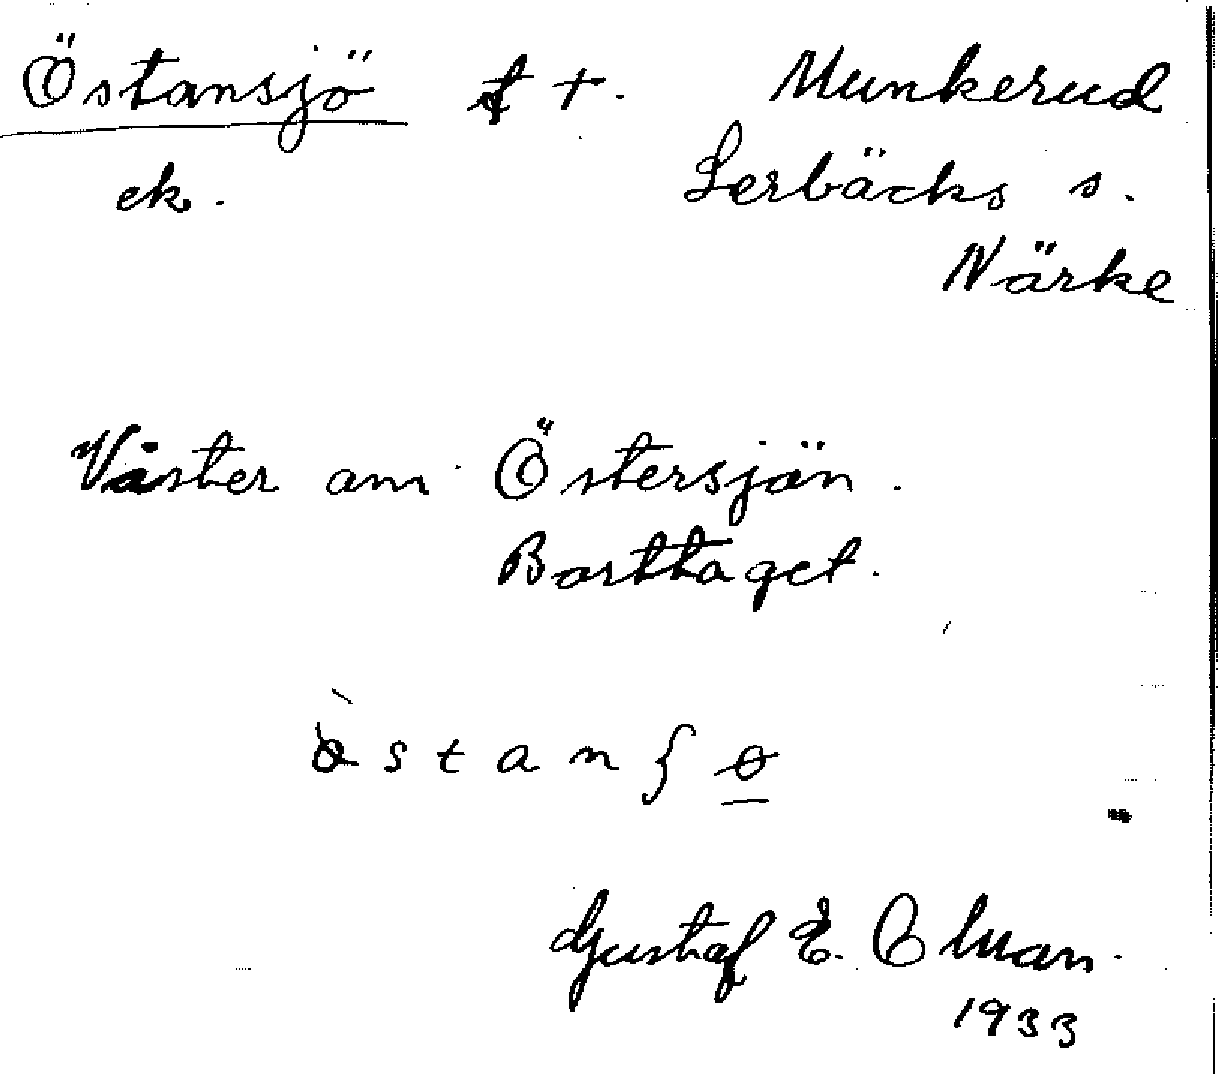 Östansjö t +. Munkerud
ek. Lerbäcks s.
Närke
Väster om Östersjön.
Borttaget.
Gustaf E. Olman.
1933